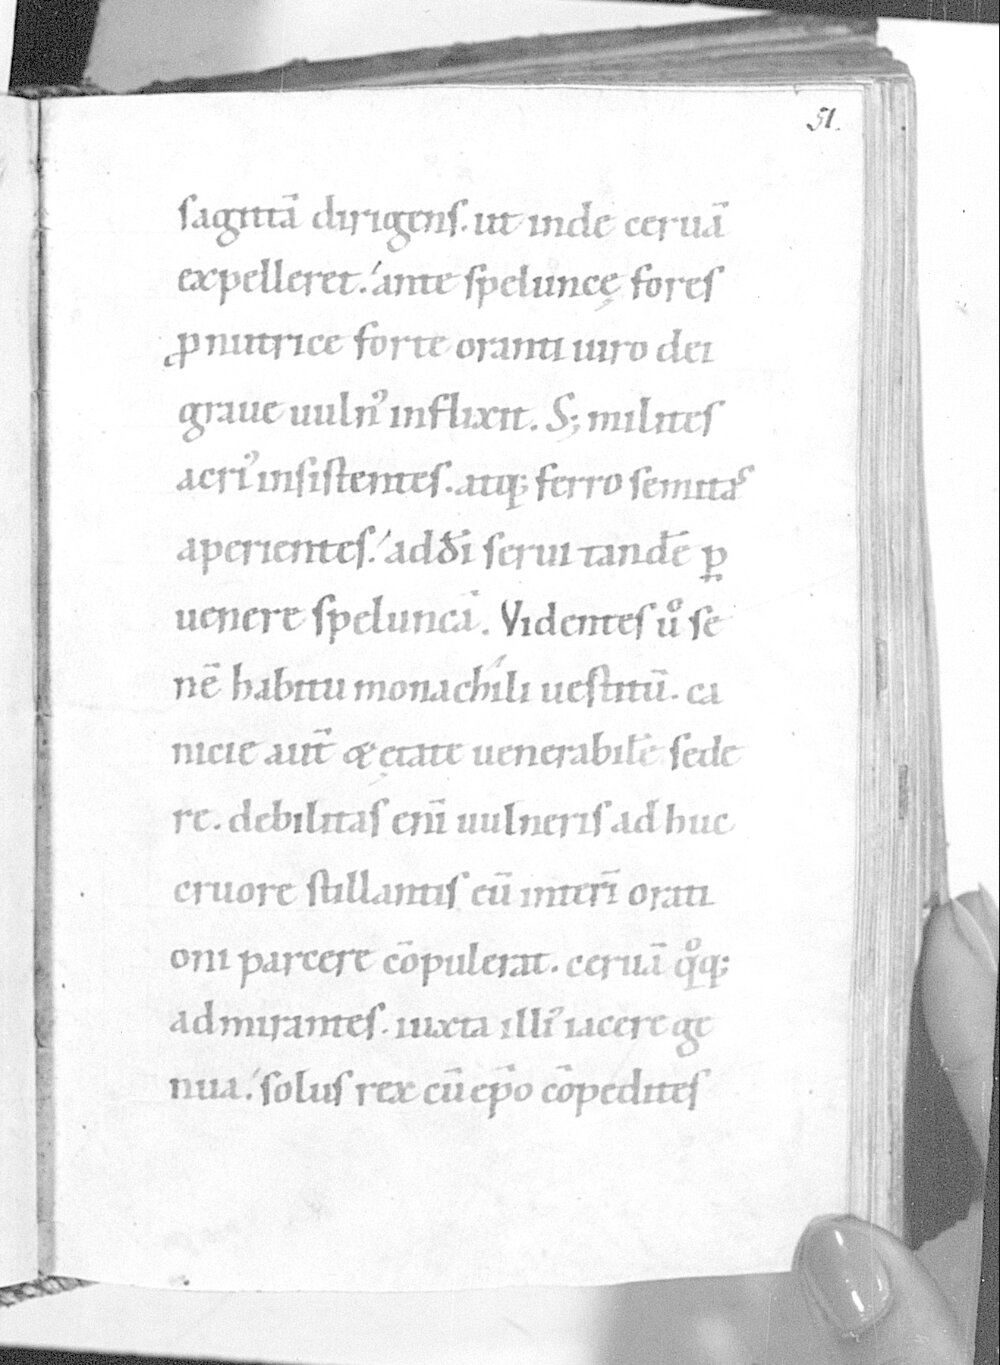 51.
sagittā dirigens. ut inde ceruā
expelleret. ante speluncę fores
ꝓ nutrice forte oranti uiro dei
graue uuln᷒ inflixit. S; milites
acri᷒ insistentes. atq; ferro semitas
aperientes. ad di serui tandē ꝑ
uenere speluncā. Videntes uͦ se
nē habitu monachili uestitū. ca
nicie aut̄ & ętate uenerabilē sede
re. debilitas eni̅ uulneris ad huc
cruore stillantis eū interi̅ orati
oni parcere cōpulerat. ceruā qͦq;
admirantes. iuxta illi᷒ iacere ge
nua. solus rex cū ep̄o cōpedites